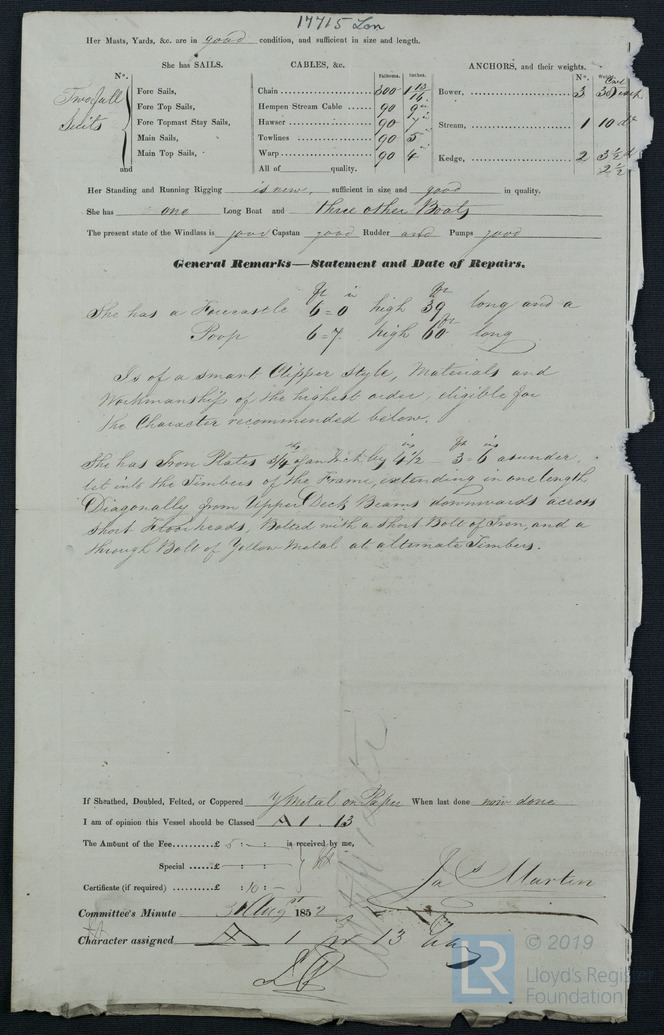 17715 Lon
Her Masts, Yards, &c. are in good condition, and sufficient in size and length.
She has SAILS.
CABLES, &c.
ANCHORS, and their weights.
N°.
Fathoms.
Inches.
N°.
Two full Suits
Fore Sails,
Fore Top Sails,
Fore Topmast Stay Sails,
Main Sails,
Main Top Sails,
and
Chain 300 1 13/16
Hempen Stream Cable 90 9"
Hawser 90 7"
Towlines 90 5"
Warp 90 4"
All of quality.
Bower, 3
Stream, 1 10 do
Kedge, 2 3 1/2
2 1/2
Her Standing and Running Rigging is new, sufficient in size and good in quality.
She has one Long Boat and three other Boats
The present state of the Windlass is good Capstan good Rudder and Pumps good
General Remarks—Statement and Date of Repairs.
ft in ft
She has a Forecastle 6=0 high 39 long and a
Poop 6=7 high 60 ft long
Is of a smart Clipper Style, Materials and
Workmanship of the highest order, eligible for
the Character recommended below.
She has Iron Plates 3/4 of an Inch by 4 1/2 - 3=6 asunder,
let into the Timbers of the Frame, extending in one length
Diagonally from Upper Deck Beams downwards across
short Floorheads, Bolted with a short Bolt of Iron, and a
through Bolt of Yellow Metal at alternate Timbers.
If Sheathed, Doubled, Felted, or Coppered Y Metal on Paper When last done now done
I am of opinion this Vessel should be Classed A 1. 13
The Amount of the Fee £ 5 : - : is received by me,
Special £ - : - :
Certificate (if required) £ : 10 : -
Jas Martin
Committee's Minute 31 Augst 1852
Character assigned A 1 for 13
© 2019
LR
Lloyd's Register
Foundation